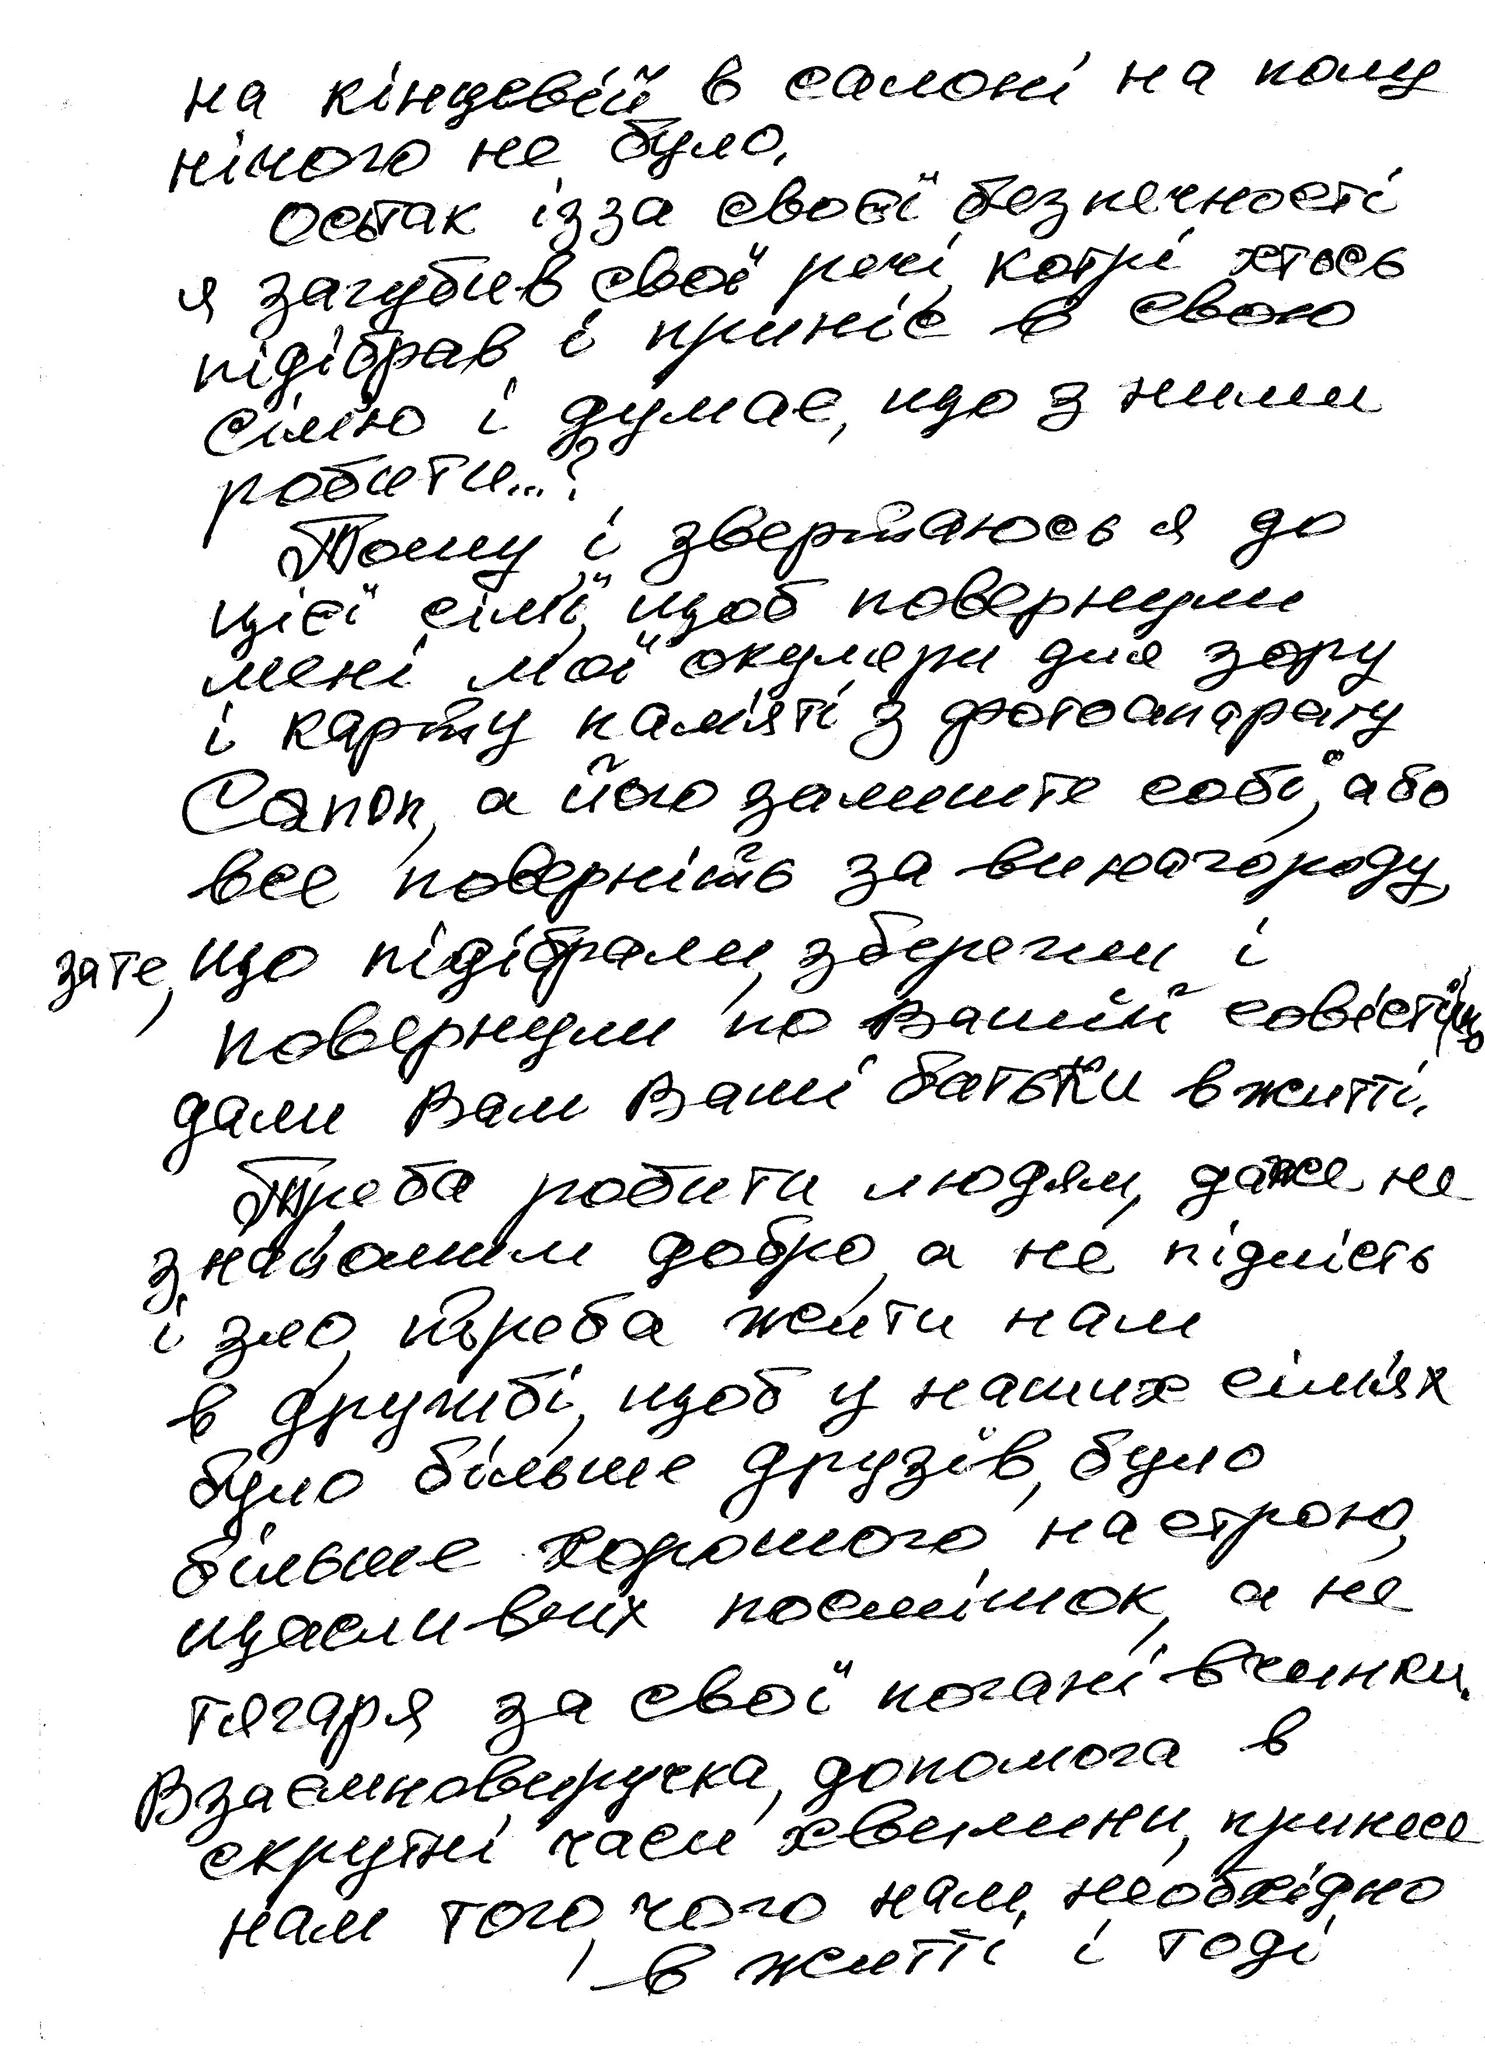 на кінцевій в салоні на полу
нічого не було.
Остак ізза своєї безпечності
я загубив свої речі, котрі хтось
підібрав і приніс в свою
сім'ю і думає, що з ними
робити...?
Тому і звертаюсь я до
цієї сім'ї, щоб повернули
мені мої окуляри для зору
і карту пам'яті з фотоапарату
Canon, а його залиште собі, або
все поверніть за винагороду,
зате, що підібрали, зберегли і
повернули по Вашій совісті, що
дали Вам Ваші батьки в житті.
Треба робити людям, даже не
знайомим добро, а не підлість
і зло, треба жити нам
в дружбі, щоб у наших сім'ях
було більше друзів, було
більше хорошого настрою,
щасливих посмішок, а не
тягаря за свої погані вчинки.
Взаємновиручка, допомога в
скрутні часи хвилини, принесе
нам того, чого нам необхідно
в житті і тоді